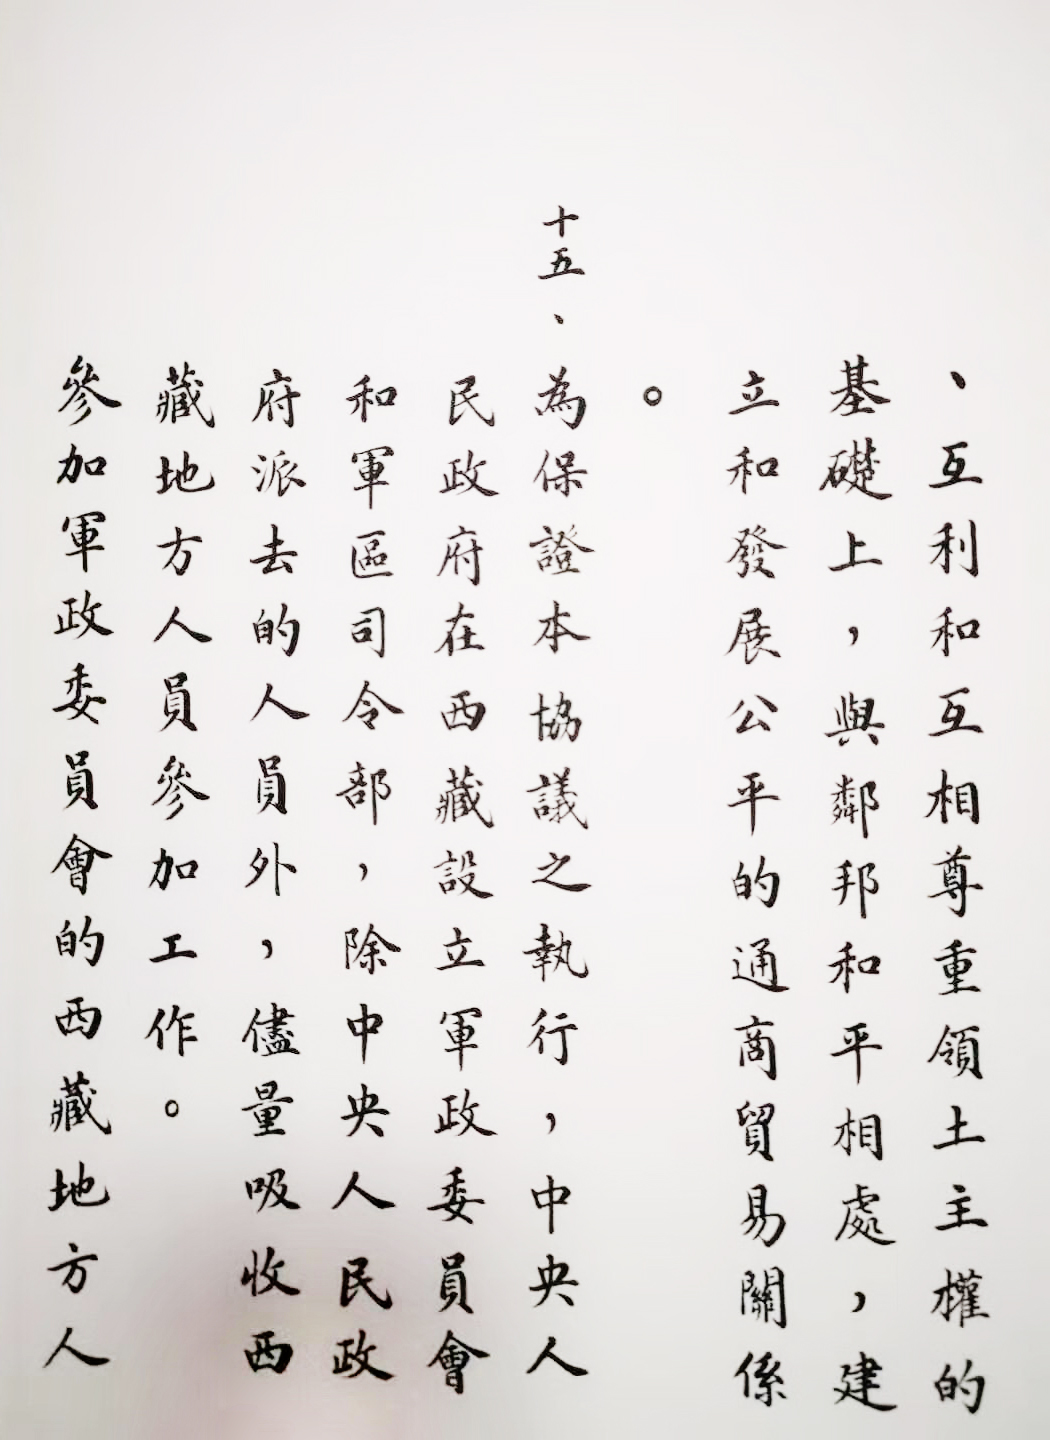 、互利和互相尊重領土主權的
基礎上，與鄰邦和平相處，建
立和發展公平的通商貿易關係
。
十五、為保證本協議之執行，中央人
民政府在西藏設立軍政委員會
和軍區司令部，除中央人民政
府派去的人員外，儘量吸收西
藏地方人員參加工作。
參加軍政委員會的西藏地方人